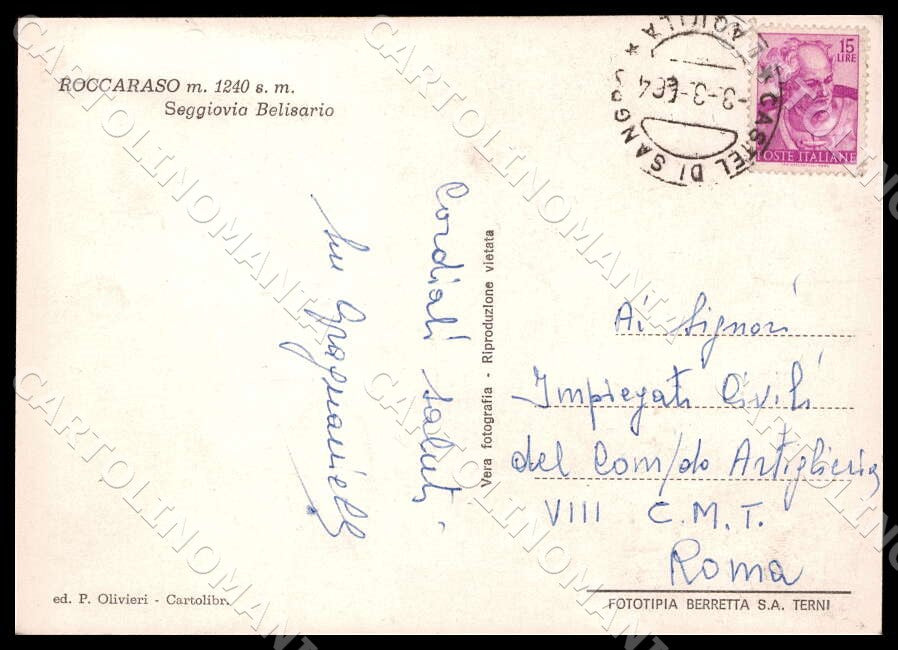 ROCCARASO m. 1240 s. m.
Seggiovia Belisario
CASTEL DI SANGRO * L'AQUILA *
-3-3-64
15
LIRE
POSTE ITALIANE
Cordiali saluti
Gragnaniello
Vera fotografia - Riproduzione vietata
Ai Signori
Impiegati Civili
del Com/do Artiglieria
VIII C.M.T.
Roma
ed. P. Olivieri - Cartolibr.
FOTOTIPIA BERRETTA S.A. TERNI
CARTOLINOMANIA